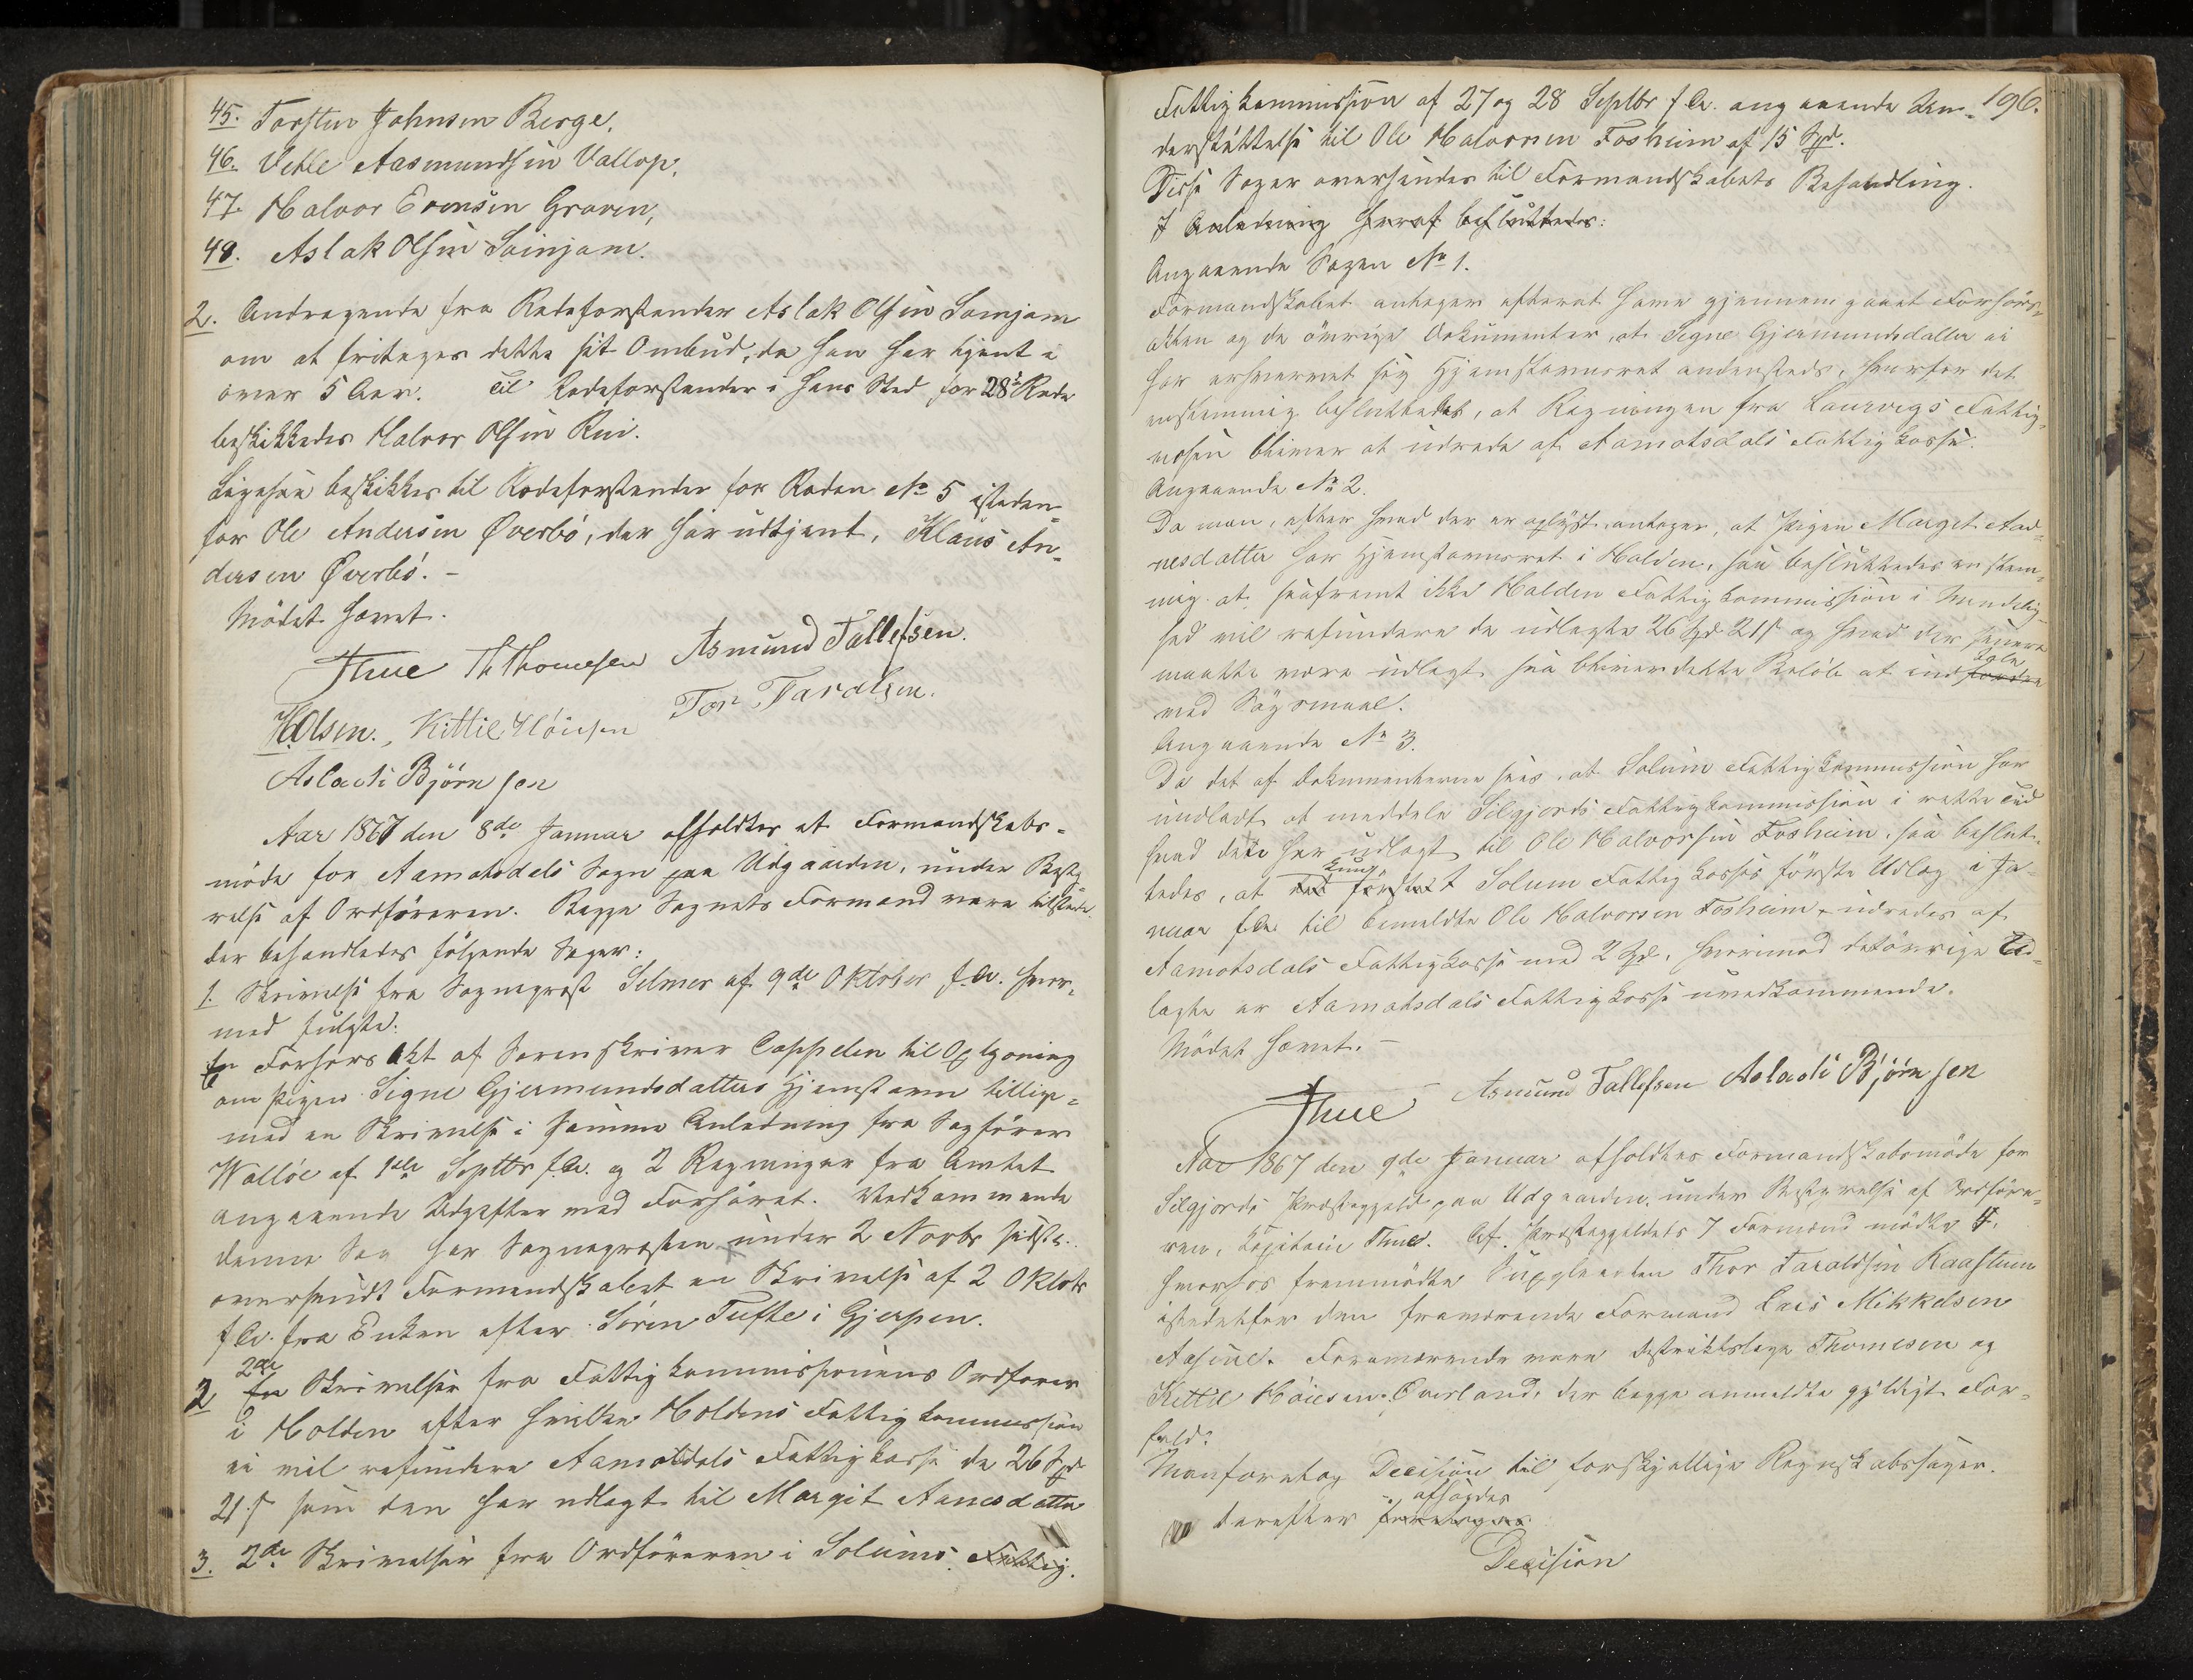 45. Torsten Johnsen Berge.
46. Vetle Aasmundsen Vallop,
47. Halvor Evensen Graven,
48. Aslak Olsen Sainjam.
2. Andragende fra Rodeforstander Aslak Olsen Samjam
om at fritages dette sit Ombud, da han har tjent i
over 5 Aar. Til Rodeforstander i hans Sted for 28de Rode
beskikkedes Halvor Olsen Rui.
Ligesaa beskikkes til Rodeforstander for Roden No 5 isteden-
for Ole Andersen Øverbö, der har udtjent, Klaus An-
dersen Øverbö. -
Mödet hævet.
Thue Th Thomesen Asmund Tallefsen.
H Olsen. Kittil Höiesen Tor Taralsen.
Aslach Björnsen
Aar 1867 den 8de Januar afholdtes et Formandskabs-
möde for Aamotsdals Sogn paa Udgaarden, under Besty-
relse af Ordföreren. Begge Sognets Formænd vare tilstede.
der behandledes fölgende Sager:
1. Skrivelse fra Sogneprest Selmer af 9de Oktober f.A. hvor-
med fulgte:
En Forhörs Akt af Sorenskriver Cappelen til Oplysning
om Pigen Signe Gjermundsdatters Hjemstavn tillige-
med en Skrivelse i samme Anledning fra Sagförer
Wallöe af 1ste Septbr f.A. og 2 Regninger fra Amtet
angaaende Udgifter med Forhöret. Vedkommende
denne Sag har Sognepresten under 2 Novbr sidstl.
oversendt Formandskabet en Skrivelse af 2 Oktbr
f.A. fra Enken efter Sören Tufte i Gjerpen.
2de
2 En Skrivelser fra Fattigkommissionens Ordförer
i Holden efter hvilken Holdens Fattigkommission
ei vil refundere Aamotsdals Fattigkasse de 26 Spd
21 s som den har udlagt til Margit Aanesdatter
3. 2de Skrivelser fra Ordföreren i Solums Fattig.
196.
Fattigkommission af 27 og 28 Septbr f.A. angaaende Un-
derstöttelse til Ole Halvorsen Fosheim af 15 Spd.
Disse Sager oversendes til Formandskabets Behandling.
I Anledning heraf besluttedes:
Angaaende Sagen No 1.
Formandskabet antager efterat have gjennemgaaet Forhörs-
akten og de övrige Dokumenter, at Signe Gjermundsdatter ei
har erhvervet sig Hjemstavnsret andensteds, hvorfor det
enstemmig besluttedes, at Regningen fra Laurvigs Fattig-
væsen bliver at udrede af Aamotsdals Fattigkasse.
Angaaende No 2.
Da man, efter hvad der er oplyst antager, at Pigen Margit Aa-
nesdatter har Hjemstavnsret i Holden, saa besluttedes enstem-
mig at, saafremt ikke Holden Fattigkommission i Mindelig-
hed vil refundere de udlagte 26 Spd 21 s og hvad der senere
maatte være udlagt, saa bliver dette Belöb at ind fordre
tale
med Sögsmaal.
Angaaende No 3.
Da det af Dokumenterne sees, at Solum Fattigkommission har
undladt at meddele Silgjords Fattigkommission i rette Tid
hvad dete har udlagt til Ole Halvorsen Fosheim, saa beslut-
kuns
tedes, at det förstest Solum Fattigkasses förste Udlæg i Ja-
nuar f.A. til bemeldte Ole Halvorsen Fosheim, udredes af
Aamotsdals Fattigkasse med 2 Spd, hvorimod det övrige Ud-
lagte er Aamotsdals Fattigkasse uvedkommende.
Mödet hævet. -
Thue Asmund Tallefsen Aslach Björnsen
Aar 1867 den 9de Januar afholdtes Formandskabsmöde for
Silgjords Præstegjeld paa Udgaarden, under Bestyrelse af Ordföre-
ren, Kapitain Thue. Af Præstegjeldets 7 Formænd mödte 4.
hvorhos fremmödte Suppleanten Thor Taraldsen Raastum
istedetfor den fraværende Formand Lars Mikkelsen
Aasine. Fraværende vare Distriktslæge Thomesen og
Kittil Höiesen Överland, der begge anmeldte gyldigt For-
fald.
Man foretog Decision til forskjellige Regnskabssager.
afsagdes
derefter foretoges
Decision